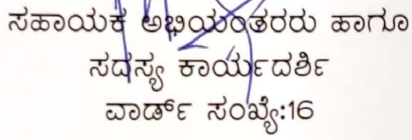 ಸಹಾಯಕ ಅಭಿಯಂತರರು ಹಾಗೂ
ಸದಸ್ಯ ಕಾರ್ಯದರ್ಶಿ
ವಾರ್ಡ್ ಸಂಖ್ಯೆ:16